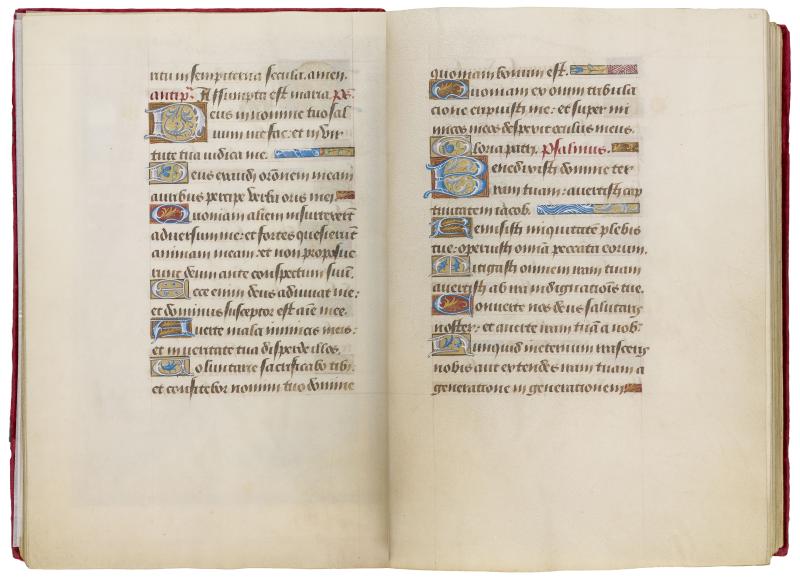 ritu in sempiterna secula. amen.
antip̄. Assumpta est maria. ps̄.
Deus in nomine tuo sal
uum me fac: et in vir
tute tua iudica me.
Deus exaudi orōnem meam
auribus percipe verba oris mei
Quoniam alieni insurrexerūt
adversum me: et fortes quesierūt
animam meam: et non proposue
runt deum ante conspectum suū.
Ecce enim deus adiuuat me:
et dominus susceptor est aīe mee.
Auerte mala inimicis meis:
et in veritate tua disperde illos.
Voluntarie sacrificabo tibi:
et confitebor nomini tuo domine
quoniam bonum est.
Quoniam ex omni tribula
cione eripuisti me: et super ini
micos meos despexit oculus meus.
Gloria patri. psalmus.
Benedixisti domine ter
ram tuam: auertisti cap
tiuitatem iacob.
Remisisti iniquitatē plebis
tue: operuisti omīa peccata eorum.
Mitigasti omnem iram tuam
auertisti ab ira indignacioīs tue.
Conuerte nos deus salutaris
noster: et auerte iram tuā a nob᷒
Nunquid ineternum irasceris
nobis aut extendes iram tuam a
generatione in generationem